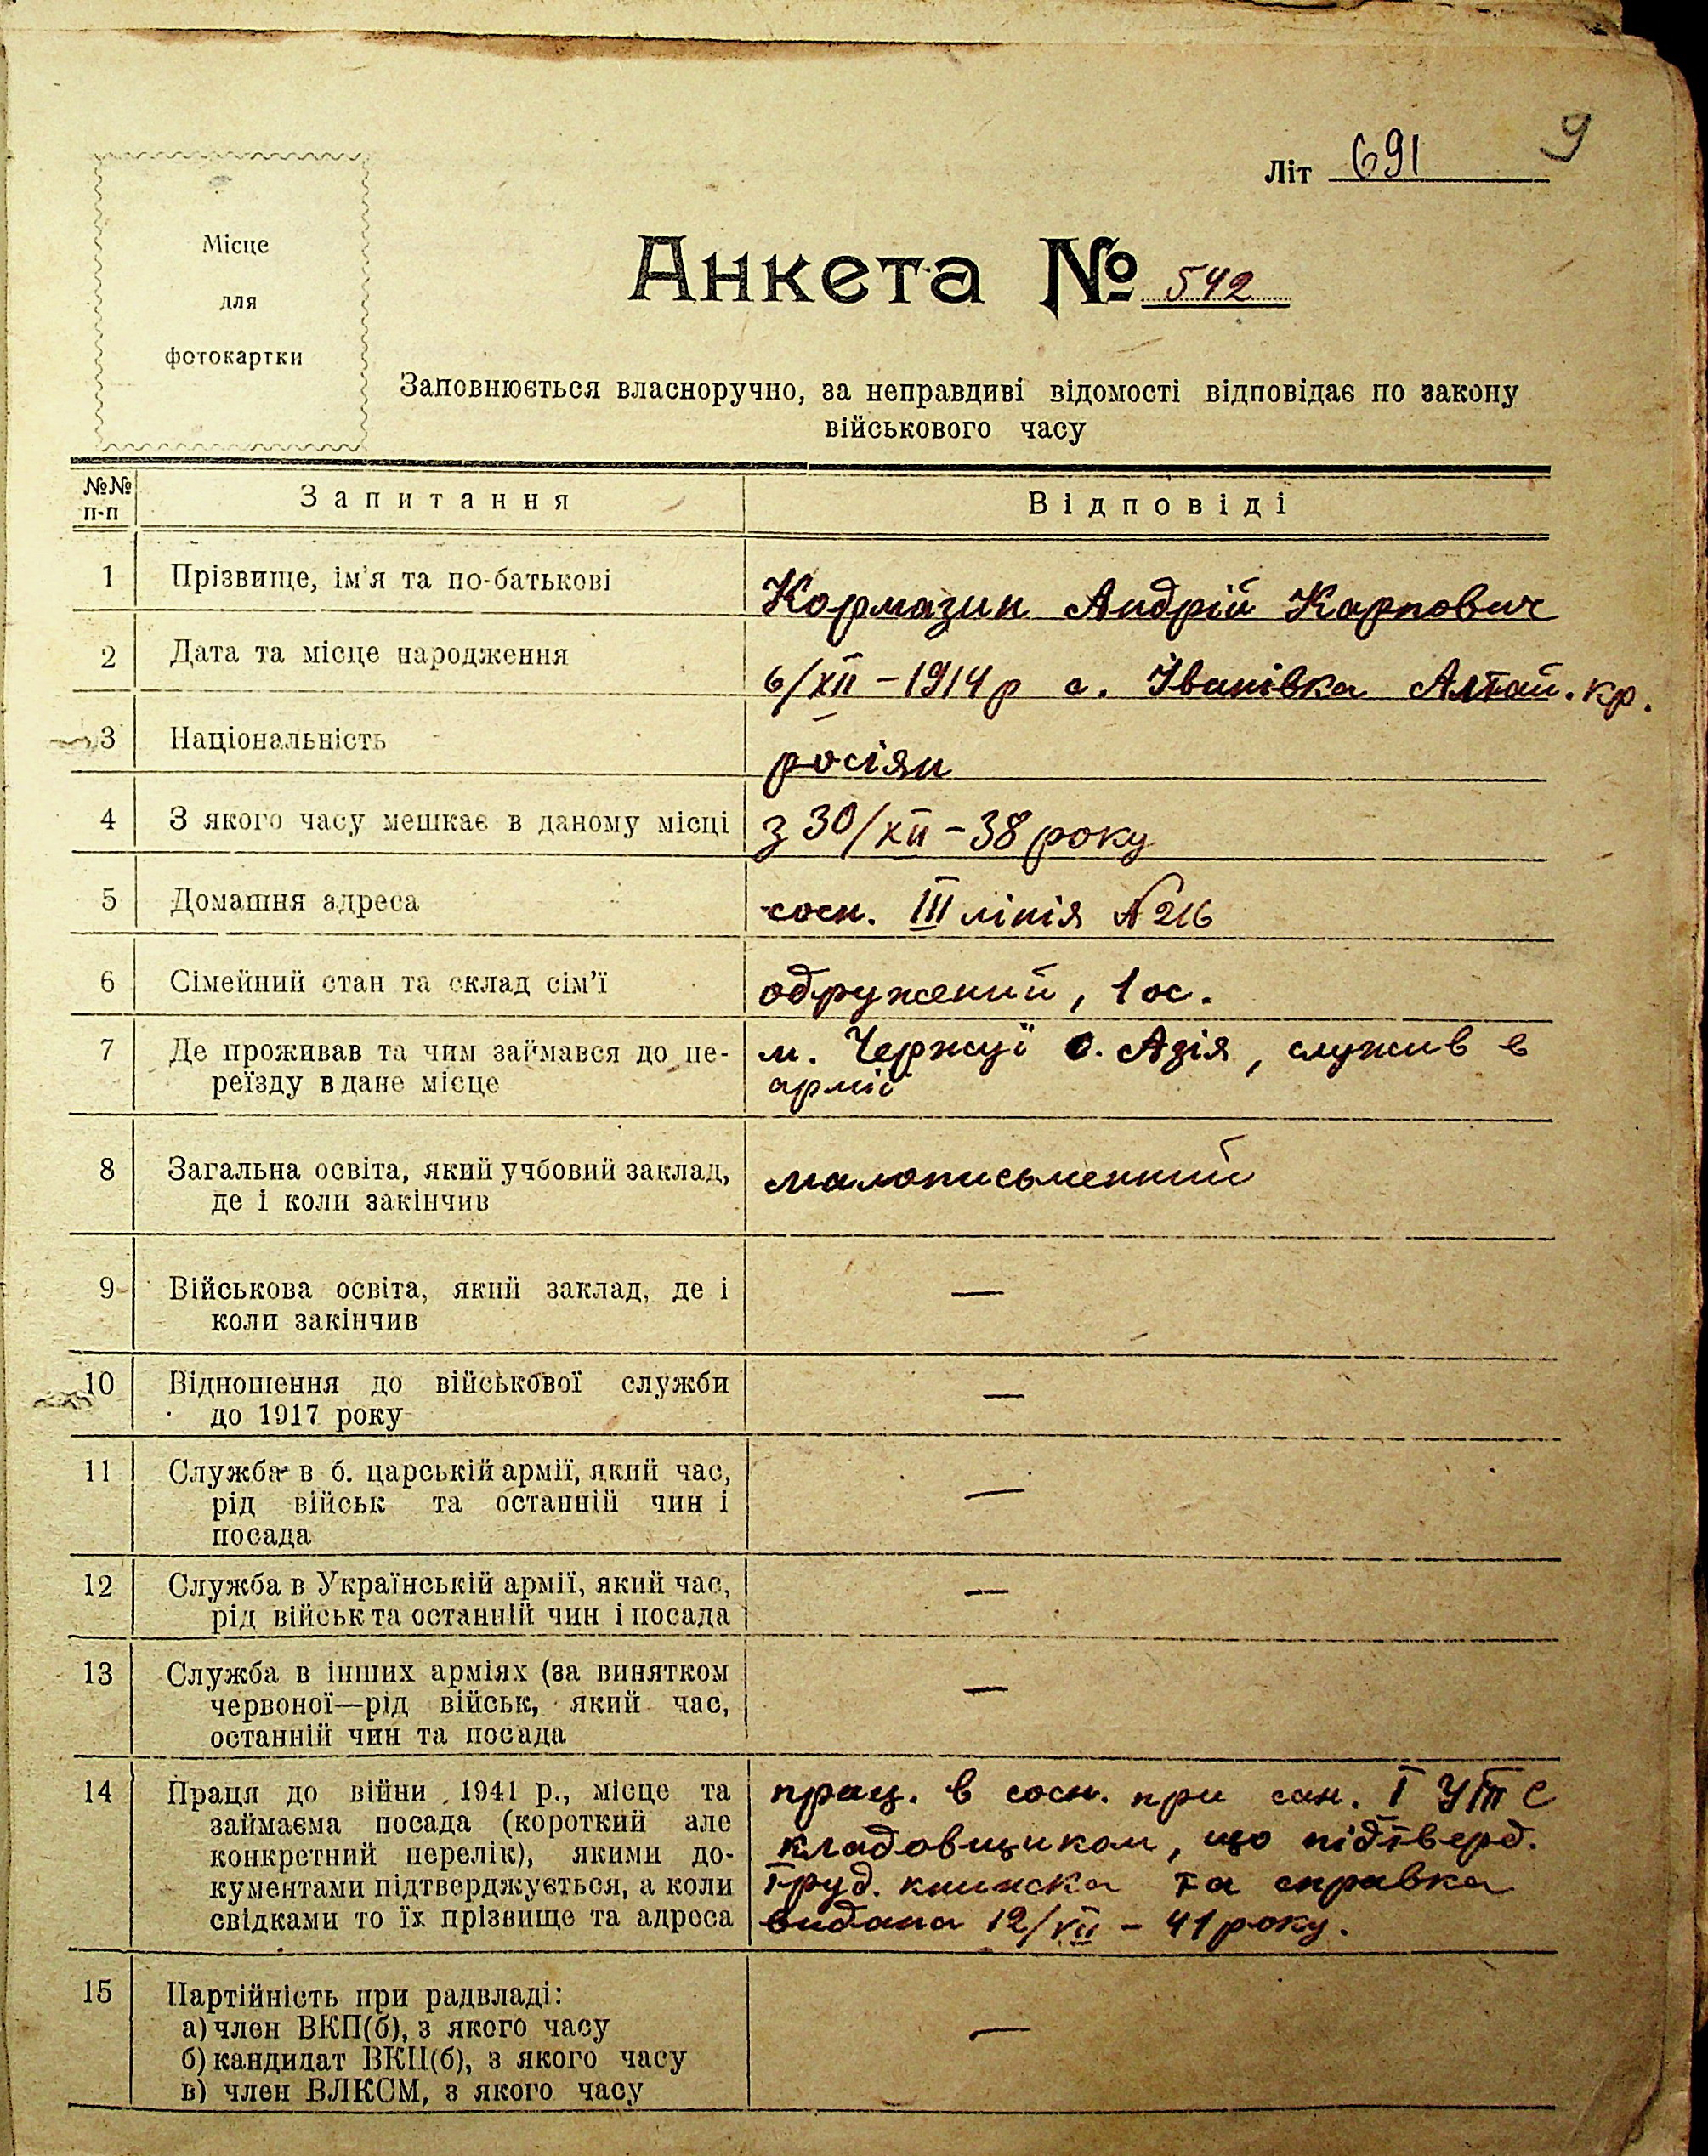 9
Літ 691
Місце
для
фотокартки
Анкета № 542
Заповнюється власноручно, за неправдиві відомості відповідає по закону
військового часу
№№ п-п
Запитання
Відповіді
1
Прізвище, ім'я та по-батькові
Кормазин Андрій Карпович
2
Дата та місце народження
6/XII – 1914 р с. Іванівка Алтай. кр.
3
Національність
росіян
4
З якого часу мешкає в даному місці
з 30/XII – 38 року
5
Домашня адреса
сосн. III лінія № 216
6
Сімейний стан та склад сім'ї
одружений, 1 ос.
7
Де проживав та чим займався до пе-
реїзду в дане місце
м. Чержуї С. Азія, служив в
армії
8
Загальна освіта, який учбовий заклад,
де і коли закінчив
малописьменний
9
Військова освіта, який заклад, де і
коли закінчив
—
10
Відношення до військової служби
до 1917 року
—
11
Служба в б. царській армії, який час,
рід військ та останній чин і
посада
—
12
Служба в Українській армії, який час,
рід військ та останній чин і посада
—
13
Служба в інших арміях (за винятком
червоної—рід військ, який час,
останній чин та посада
—
14
Праця до війни 1941 р., місце та
займаєма посада (короткий але
конкретний перелік), якими до-
кументами підтверджується, а коли
свідками то їх прізвище та адреса
прац. в сосн. при сан. I УТС
кладовщиком, що підтверд.
труд. книжка та справка
видана 12/VII – 41 року.
15
Партійність при радвладі:
а) член ВКП(б), з якого часу
б) кандидат ВКП(б), з якого часу
в) член ВЛКСМ, з якого часу
—